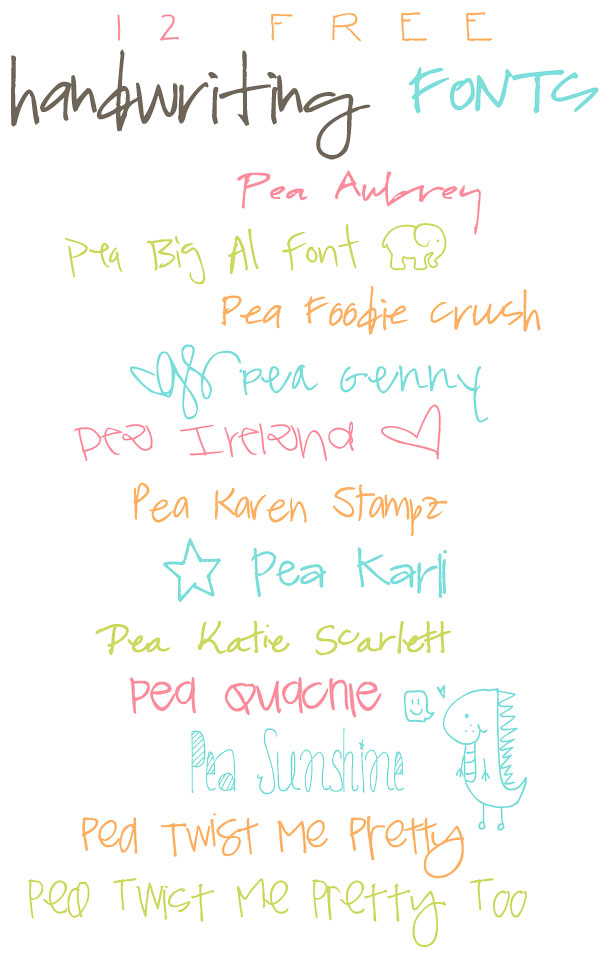 12 FREE
handwriting FONTS
Pea Aubrey
Pea Big Al Font
Pea Foodie Crush
Pea Genny
Pea Ireland
Pea Karen Stampz
Pea Karli
Pea Katie Scarlett
Pea Quachie
Pea Sunshine
Pea Twist Me Pretty
Pea Twist Me Pretty Too